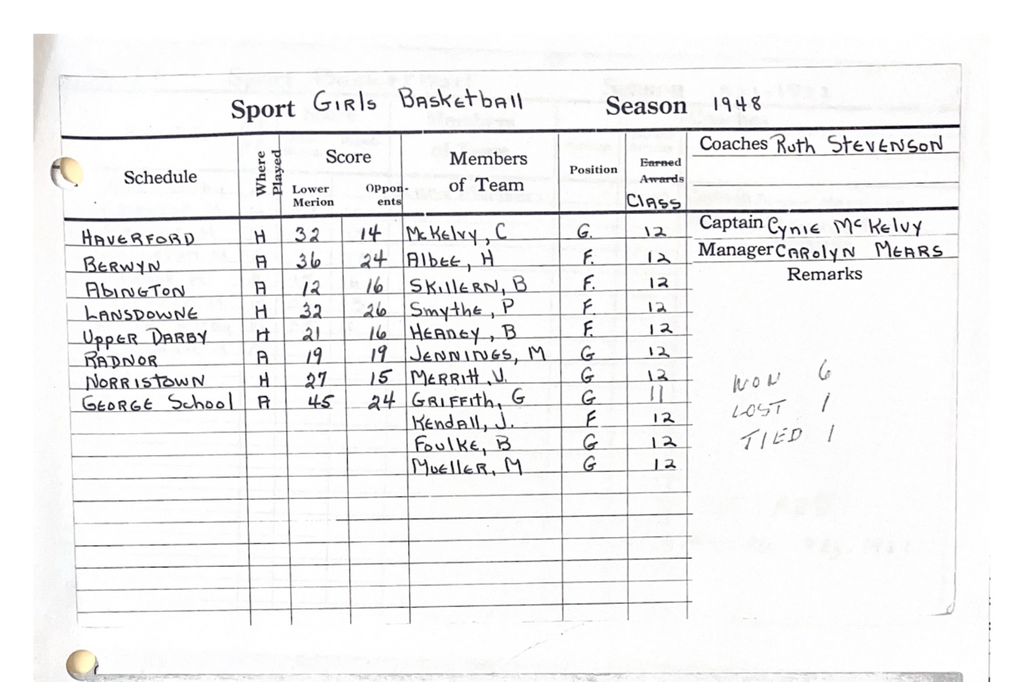 Sport Girls Basketball Season 1948
Schedule Where Played Score Lower Merion Opponents Members of Team Position Earned Awards Class Coaches Ruth Stevenson
Haverford H 32 14 McKelvy, C G. 12 Captain Cynie McKelvy
Berwyn A 36 24 Albee, H F. 12 Manager Carolyn Mears
Abington A 12 16 Skillern, B F. 12 Remarks
Lansdowne H 32 26 Smythe, P F. 12
Upper Darby H 21 16 Heaney, B F. 12
Radnor A 19 19 Jennings, M G 12
Norristown H 27 15 Merritt, V. G 12 Won 6
George School A 45 24 Griffith, G G 11 Lost 1
Kendall, J. F 12 Tied 1
Foulke, B G 12
Mueller, M G 12